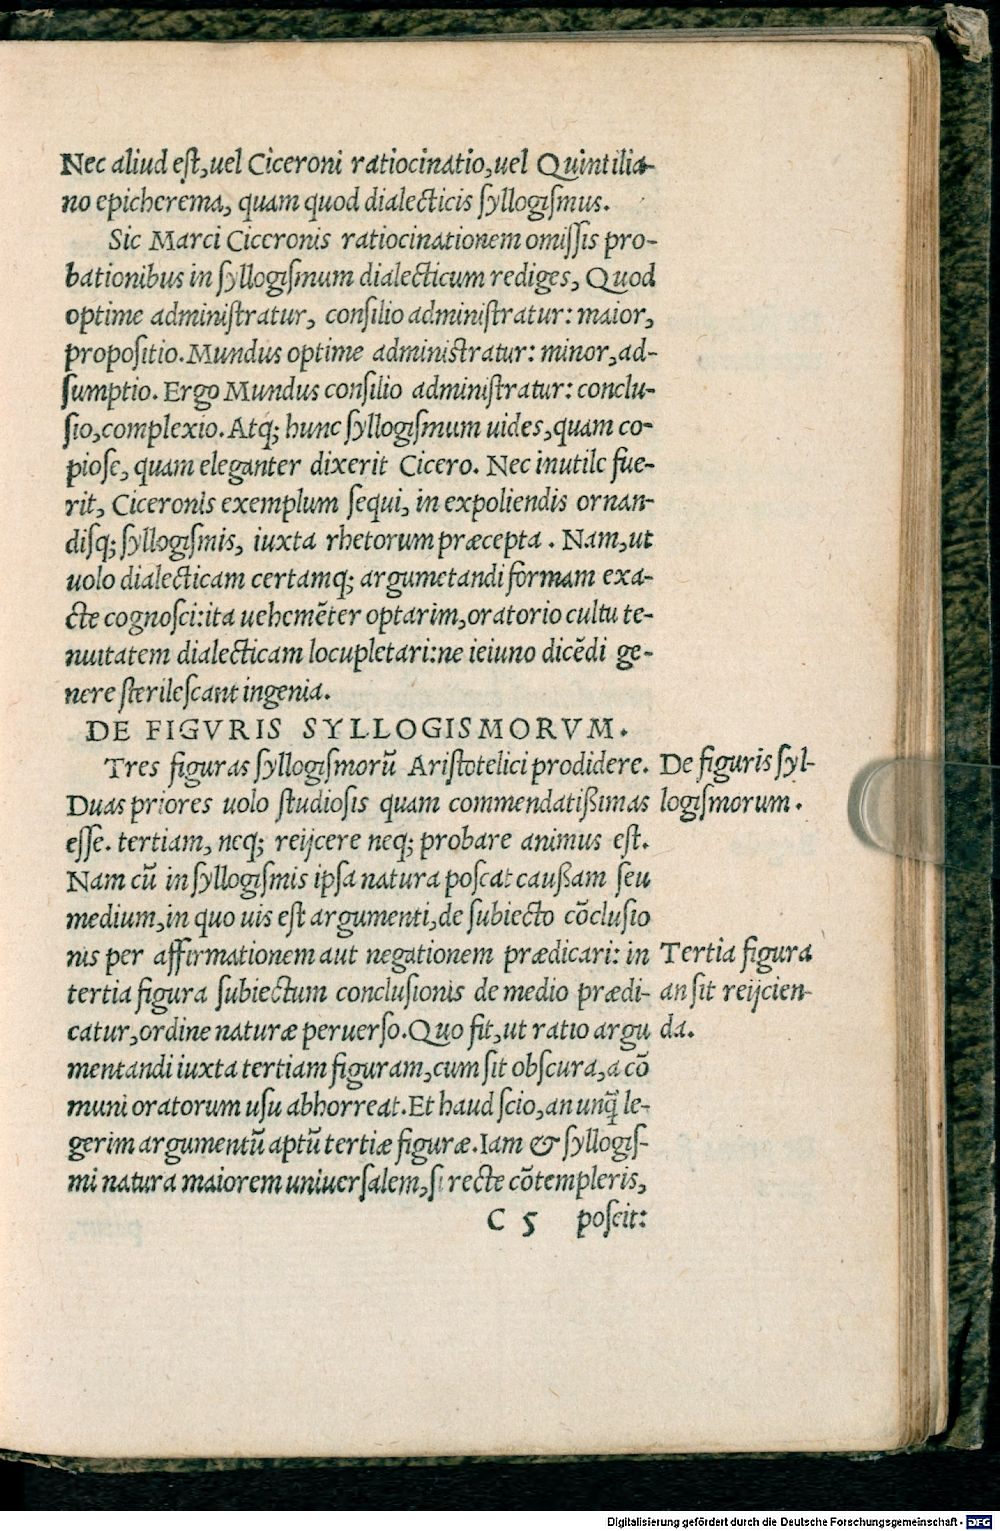 Nec aliud eſt, uel Ciceroni ratiocinatio, uel Quintilia-
no epicherema, quam quod dialecticis ſyllogiſmus.
Sic Marci Ciceronis ratiocinationem omiſſis pro-
bationibus in ſyllogiſmum dialecticum rediges, Quod
optime adminiſtratur, conſilio adminiſtratur: maior,
propoſitio. Mundus optime adminiſtratur: minor, ad-
ſumptio. Ergo Mundus conſilio adminiſtratur: conclu-
ſio, complexio. Atq; hunc ſyllogiſmum uides, quam co-
pioſe, quam eleganter dixerit Cicero. Nec inutile fue-
rit, Ciceronis exemplum ſequi, in expoliendis ornan-
diſq; ſyllogiſmis, iuxta rhetorum præcepta. Nam, ut
uolo dialecticam certamq; argumetandi formam exa-
cte cognoſci: ita uehemẽter optarim, oratorio cultu te-
nuitatem dialecticam locupletari: ne ieiuno dicẽdi ge-
nere ſterileſcant ingenia.
DE FIGVRIS SYLLOGISMORVM.
Tres figuras ſyllogiſmorũ Ariſtotelici prodidere.
De figuris ſyl-
logiſmorum.
Duas priores uolo ſtudioſis quam commendatißimas
eſſe. tertiam, neq; reijcere neq; probare animus eſt.
Nam cũ in ſyllogiſmis ipſa natura poſcat cauſſam ſeu
medium, in quo uis eſt argumenti, de ſubiecto cõcluſio
nis per affirmationem aut negationem prædicari: in
Tertia figura
an ſit reijcien-
da.
tertia figura ſubiectum concluſionis de medio prædi-
catur, ordine naturæ peruerſo. Quo fit, ut ratio argu
mentandi iuxta tertiam figuram, cum ſit obſcura, a cõ
muni oratorum uſu abhorreat. Et haud ſcio, an unq̃ le-
gerim argumentũ aptũ tertiæ figuræ. Iam & ſyllogiſ-
mi natura maiorem uniuerſalem, ſi recte cõtempleris,
C 5 poſcit:
Digitalisierung gefördert durch die Deutsche Forschungsgemeinschaft - DFG